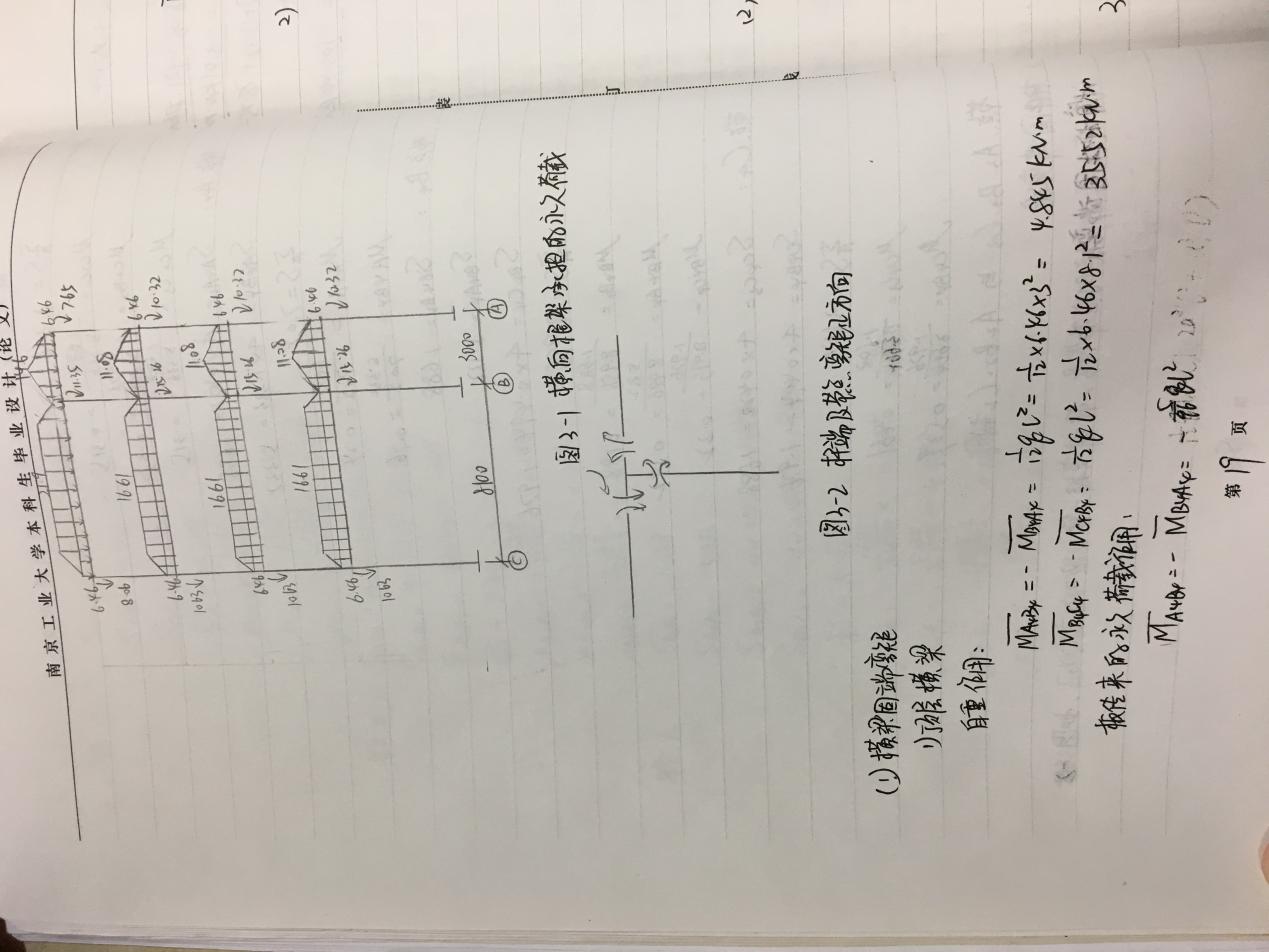 南京工业大学本科生毕业设计(论文)
6.46
7.65
11.35
6.46
8.06
11.08
6.46
10.32
15.26
1661
6.46
10.63
11.08
6.46
10.32
15.26
1661
6.46
10.63
11.08
6.46
10.32
15.26
1661
6.46
10.63
8100
3000
C
B
A
图3-1 横向框架承担的永久荷载
图3-2 杆端及节点弯矩正方向
(1) 横梁固端弯矩
1) 顶层横梁
自重作用:
MA4B4 = -MB4A4 = 1/12 gl² = 1/12×6.46×3² = 4.845 kN·m
MB4C4 = -MC4B4 = 1/12 gl² = 1/12×6.46×8.1² = 35.52 kN·m
板传来的永久荷载作用:
MA4B4 = -MB4A4 =
第 19 页
装
订
线
2)
(2)
3